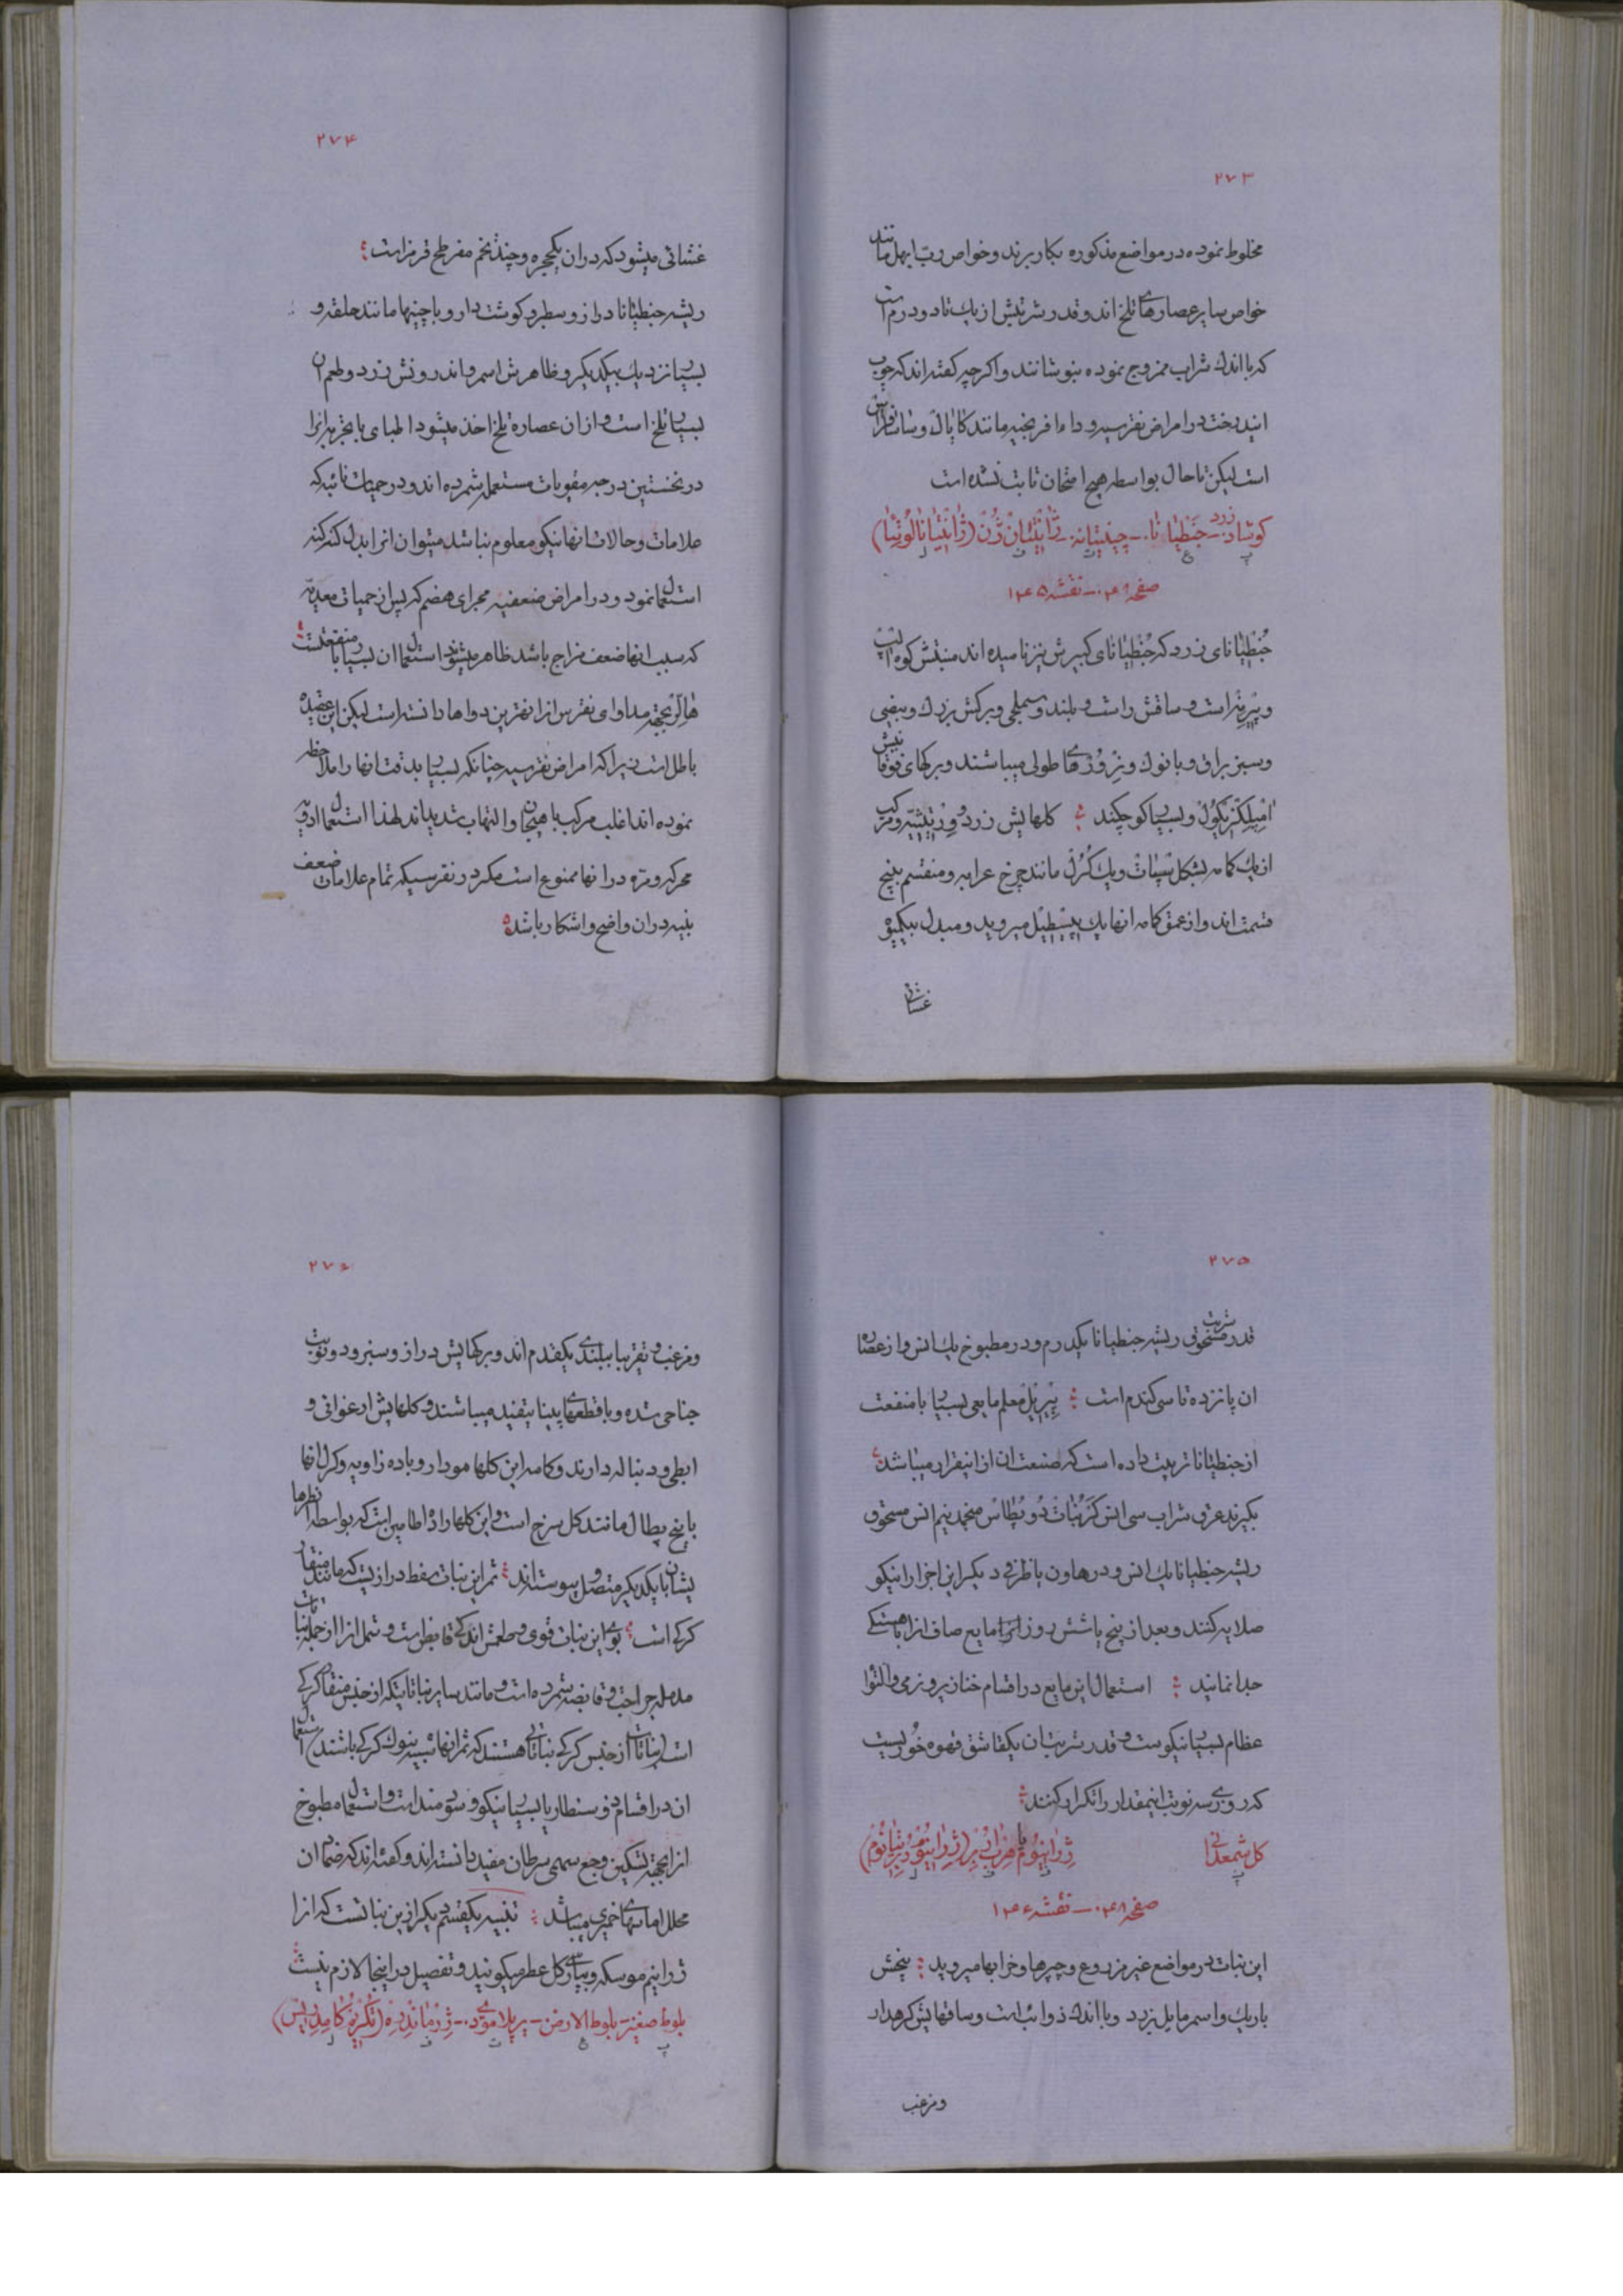 ۲۷۳
مخلوط نموده در مواضع مذکوره بکار برند و خواص رب ابهل مانند
خواص سایر عصارهای تلخ اند و قدر شربتش از یک تا دو درم است
که با اندک شراب ممزوج نموده بنوشانند و اکرچه کفته اند که چوب
این درخت در امراض نقرسیه و داء افرنجیه مانند کایاک و ساسافراس
است لیکن تا حال بواسطه هیچ امتحان ثابت نشده است
کوشاد زرد - جنطیانا - چینتیانه - ژانتیان ژن (ژانتیانا لوتئا)
صفحه ۰۴۸ - نقشه ۱۴۵
جنطیانای زرد که جنطیانای کبیرش نیز نامیده اند منبتش کوه الپ
و پیرنه است و ساقش راست و بلند و سملچی و برکش بزرک و بیضی
و سبز براق و با نوک و نرورهای طولی میباشند و برکهای فوقانیش
امپلکزیکول و بسیار کوچکند کلهایش زرد و ورتیسیه و مرکب
از یک کامه بشکل سپات و یک کرل مانند چرخ عرابه و منقسم به پنج
قسمت اند و از عمق کامه انها یک پیسطیل میروید و مبدل بیکمیوه
غشائی
۲۷۴
غشائی میشود که در ان یکحجره و چند تخم مفرطح قرمز است
ریشه جنطیانا دراز و سطبر و کوشت دار و با چینها مانند حلقه و
بسیار نزدیک بیکدیکر و ظاهرش اسمر و اندرونش زرد و طعم ان
بسیار تلخ است و از ان عصاره تلخ اخذ میشود اطبای با تجربه انرا
در نخستین درجه مقویات مستعمله شمرده اند و در حمیات نائبه که
علامات و حالات انها نیکو معلوم نباشد میتوان انرا بدل کنه کنه
استعمال نمود و در امراض ضعفیه مجرای هضم که پس از حمیات معدیه
که سبب انها ضعف مزاج باشد ظاهر میشوند استعمال ان بسیار با منفعتست
هالر بجهة مداوای نقرس انرا بهترین دواها دانسته است لیکن این عقیده
باطل است زیرا که امراض نقرسیه چنانکه بسیار بدقت انها را ملاحظه
نموده اند اغلب مرکب با هیجان و التهاب شدید اند لهذا استعمال ادویه
محرکه و مره در انها ممنوع است مکر در نقرسیکه تمام علامات ضعف
بنیه در ان واضح و اشکار باشد
۲۷۵
قدر شربت مسحوق ریشه جنطیانا یکدرم و در مطبوخ یک انس و از عصاره
ان پانزده تا سی کندم است پیریل معلم مایعی بسیار با منفعت
از جنطیانا ترتیب داده است که صنعت ان از اینقرار میباشد
بکیرند عرق شراب سی انس کربنات دو پطاس منجمد نیم انس مسحوق
ریشه جنطیانا یک انس و در هاون یا ظرفی دیکر این اجزا را نیکو
صلایه کنند و بعد از پنج یا شش روز انرا مایع صاف انرا باهستکی
جدا نمایند استعمال این مایع در اقسام خنازیر و نرمی و التوا
عظام بسیار نیکوست و قدر شربت ان یکقاشق قهوه خوریست
که روزی سه نوبت اینمقدار را تکرار کنند
کل شمعدانی ژرانیوم یا هرب ابر (ژرانیوم ربرتیانوم)
صفحه ۰۴۸ - نقشه ۱۴۶
این نبات در مواضع غیر مزروع و چپرها و خرابها میروید بیخش
باریک و اسمر مایل بزرد و با اندک ذوائب است و ساقهایش کره دار
و مزغب
۲۷۶
و مزغب و تقریبا ببلندی یکقدم اند و برکهایش دراز و سبز و دو نوبت
جناحی شده و با قطعهای پیناتیفید میباشند و کلهایش ارغوانی و
ابطی و دنباله دارند و کامه این کلها مودار و با ده زاویه و کرل انها
با پنج پطال مانند کل سرخ است و این کلها را ده اطامین است که بواسطه
یشان با یکدیکر متصل و پیوسته اند ثمر این نبات سفط درازیست که مانند منقار
کرکی است بوی این نبات قوی و طعمش اندکی قابض است و تمل انرا از جمله نباتات
مدمله جراحت و قابضه شمرده است و مانند سایر نباتاتیکه از جنس منقار کرکی
است (نباتات از جنس کرکی نباتاتی هستند که ثمر انها شبیه بنوک کرکی باشند) استعمال
ان در اقسام ذوسنطاریا بسیار نیکو و سودمند است و استعمال مطبوخ
انرا بجهة تسکین وجع سمی سرطان مفید دانسته اند و کفته اند که ضماد ان
محلل اماسهای خمیری میباشد تنبیه یکقسم دیکر از این نباتست که انرا
ژرانیم موسکه و بپارسی کل عطر میکویند و تفصیل در اینجا لازم نیست
بلوط صغیر - بلوط الارض - یر پلاموی - ژرماندره (تکریوم کامدریس)